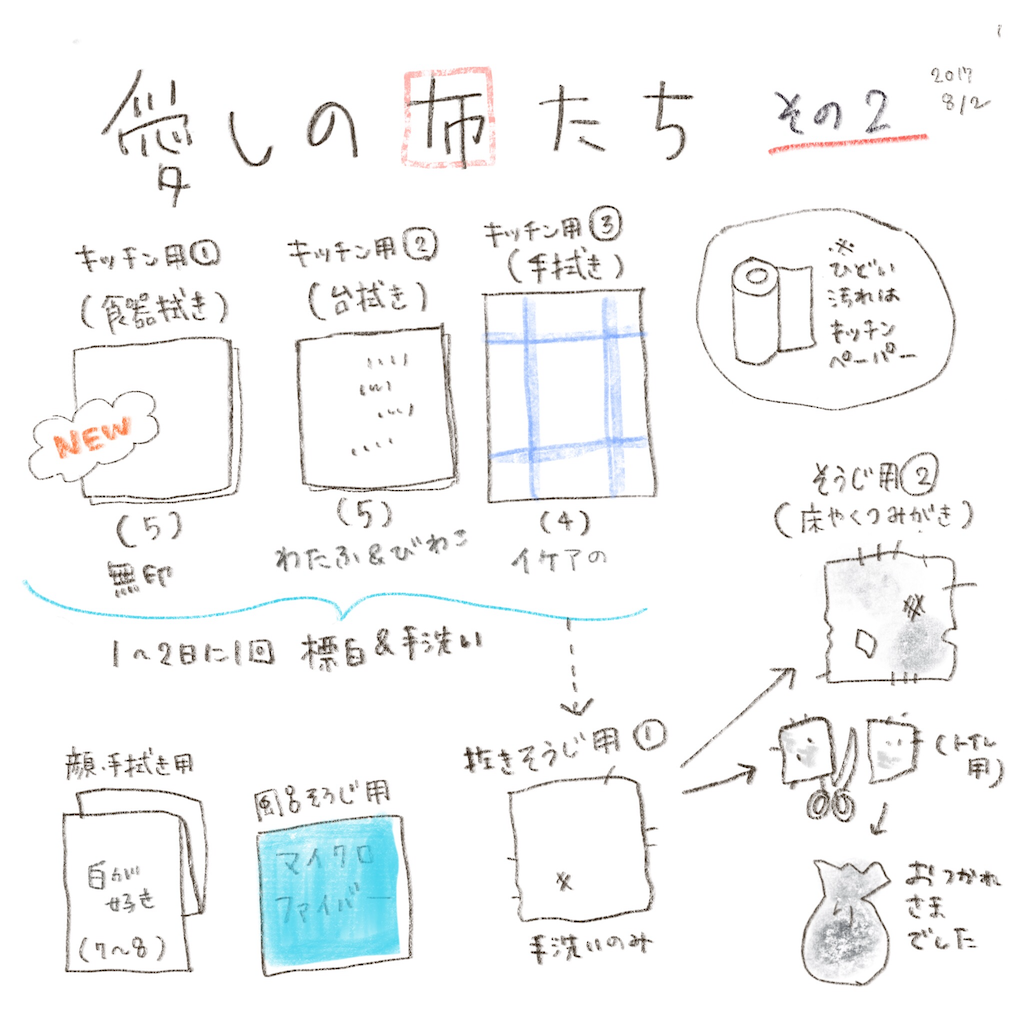 愛しの布たち その2
2017
8/2
キッチン用①
(食器拭き)
NEW
(5)
無印
キッチン用②
(台拭き)
(5)
わたふ&びわこ
キッチン用③
(手拭き)
(4)
イケアの
※
ひどい
汚れは
キッチン
ペーパー
1〜2日に1回 標白&手洗い
そうじ用②
(床やくつみがき)
拭きそうじ用①
手洗いのみ
(トイレ
用)
おつかれ
さま
でした
顔・手拭き用
白が
好き
(7〜8)
風呂そうじ用
マイクロ
ファイバー